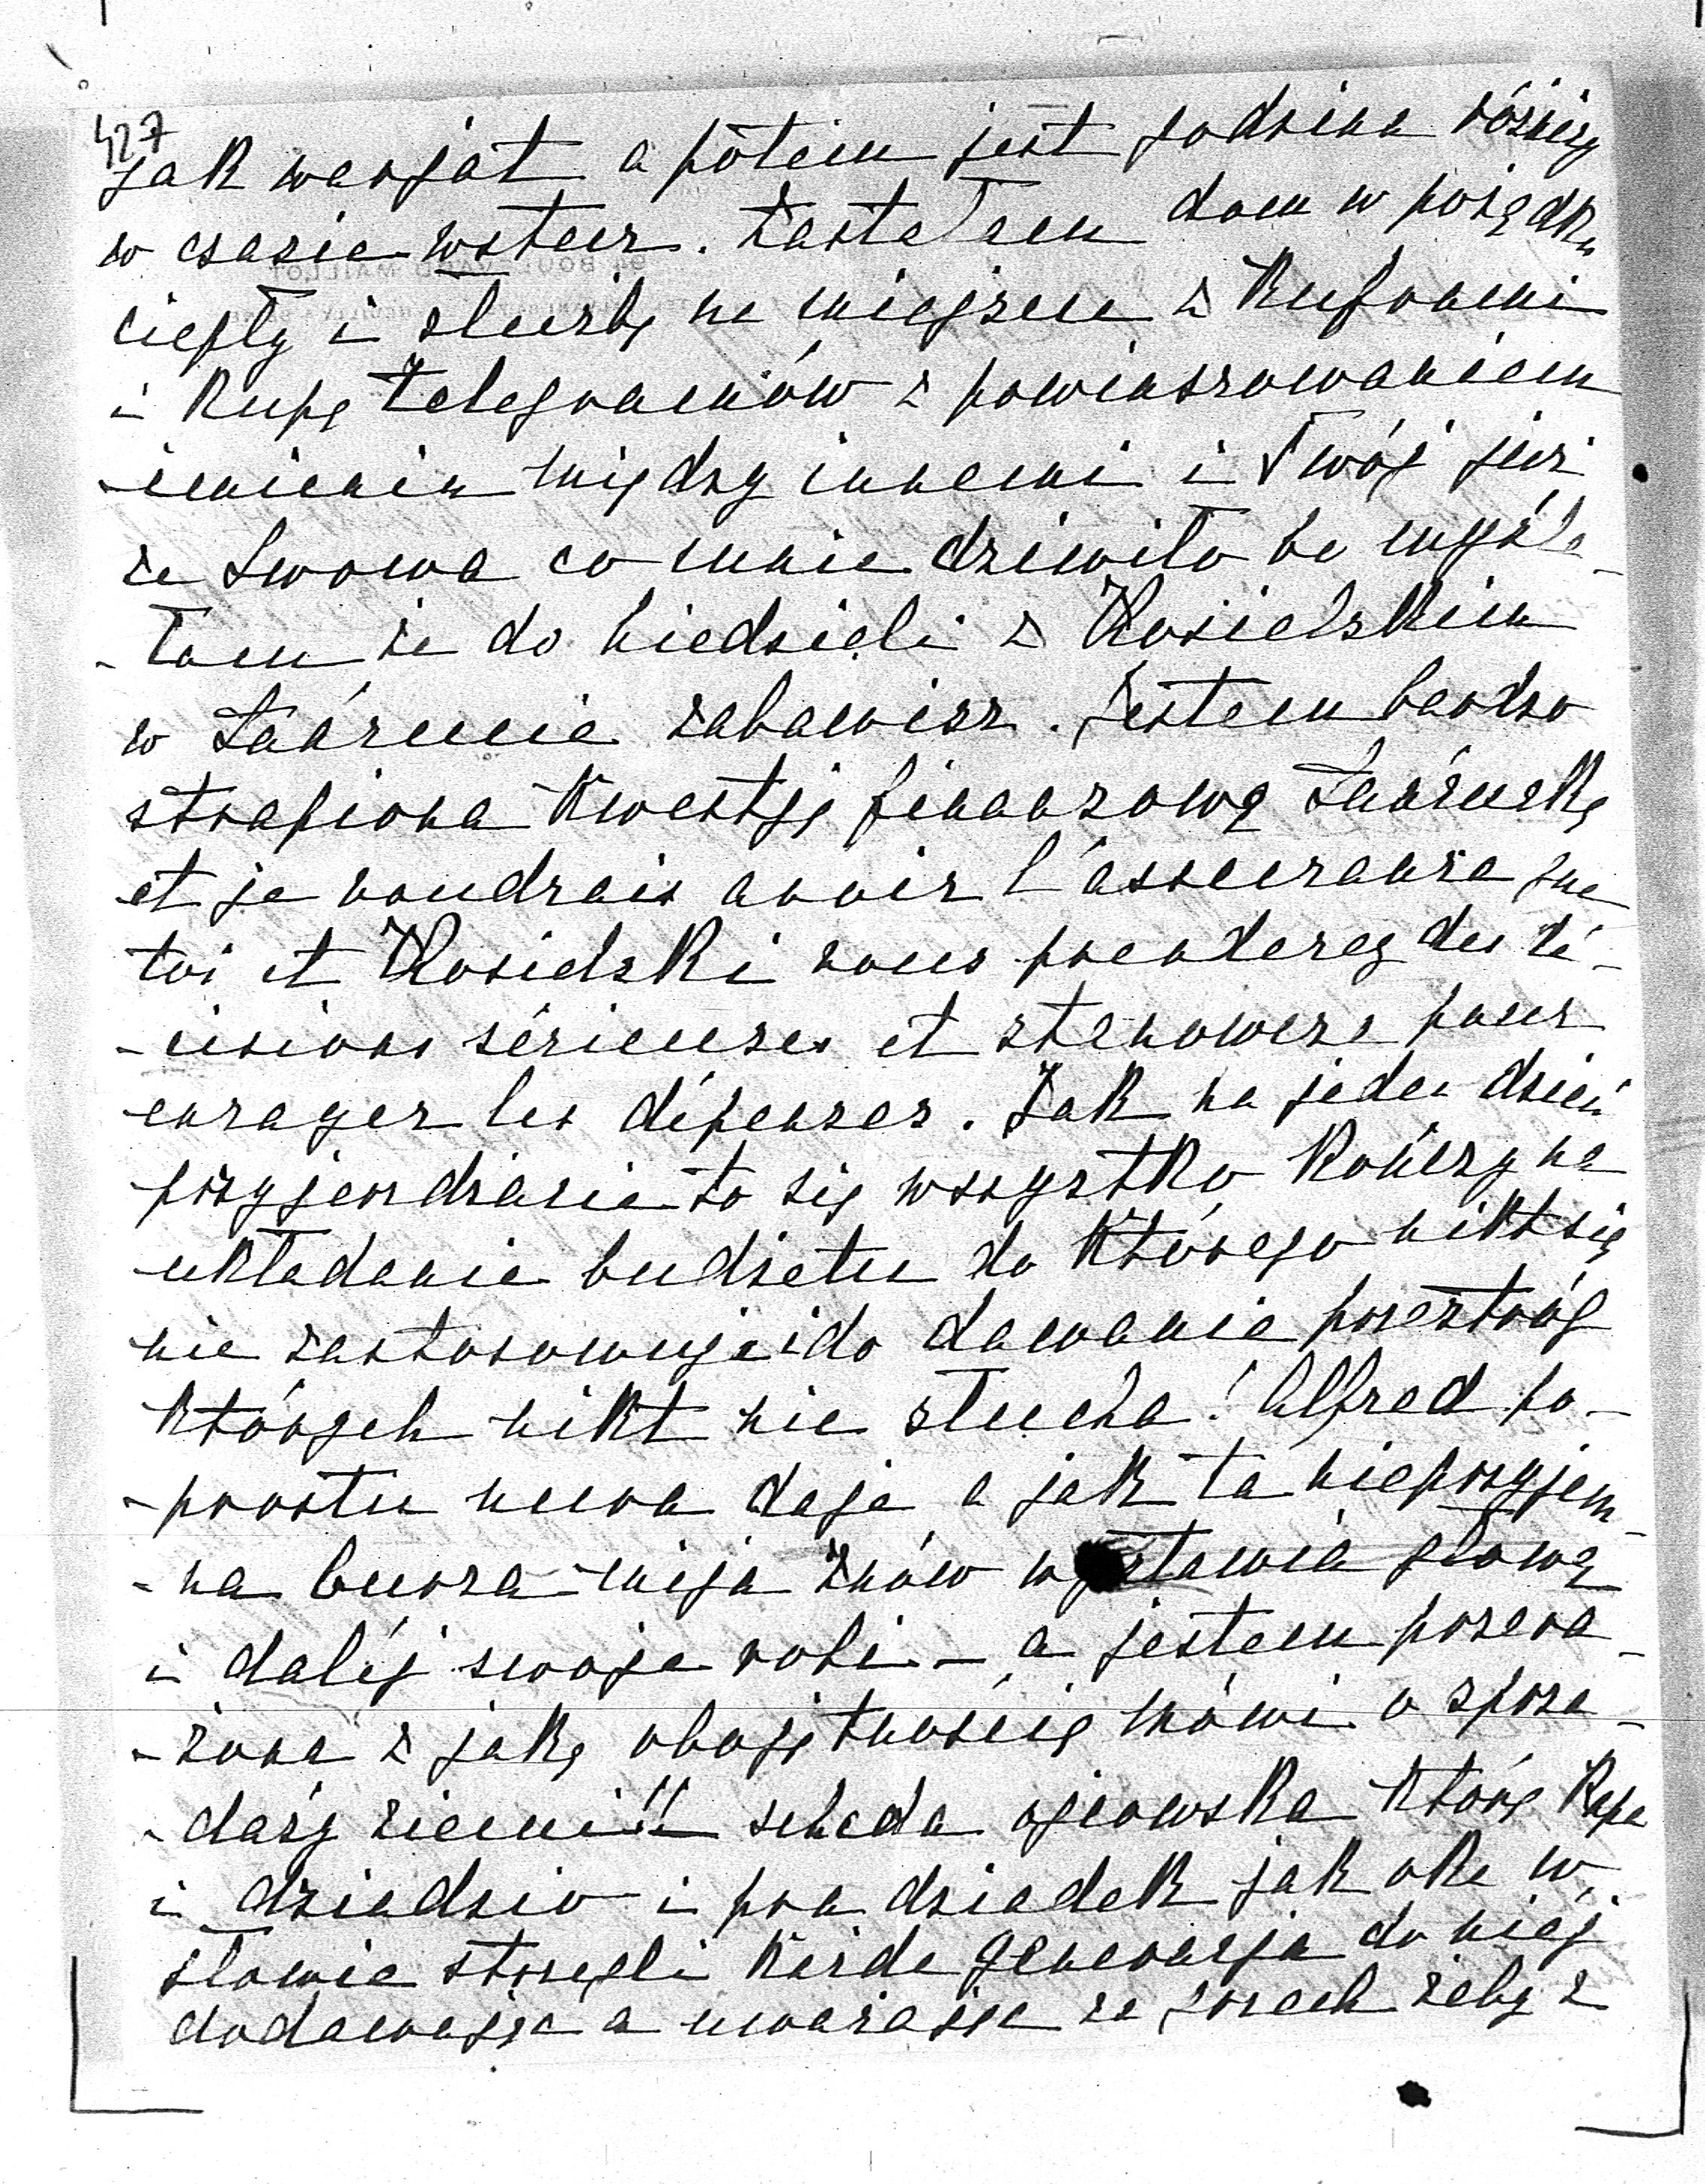 427
jak warjat a potem jest godzina różnicy
w czasie wstecz. Zastałam dom w porządku
ciepły i służbę na miejscu z kuframi
i kupę telegramów z powinszowaniem
imienin między innemi i Twój już
ze Lwowa co mnie dziwiło bo myśla-
-łam że do niedzieli z Kosielskim
w Łańcucie zabawisz. Jestem bardzo
strapiona kwestją finansową Łańcucką
et je voudrais avoir l'assurance que
toi et Kosielski vous prenderez des dé-
-cisions sérieuses et stanowcze pour
enrayer les dépenses. Jak na jeden dzień
przyjeżdżacie to się wszystko kończy na
układanie budżetu do którego nikt się
nie zastosowuje i do dawania przestróg
których nikt nie słucha! Alfred po-
-prostu nura daje a jak ta nieprzyjem-
-na burza mija znów wystawia głowę
i daléj swoje robi – a jestem przera-
-żona z jaką obojętnością mówi o sprze-
-daży ziemi!! scheda ojcowska którą Papa
i dziadzio i pra dziadek jak oka w
głowie strzegli każda generacja do niéj
dodawając a uważając za grzech żeby z